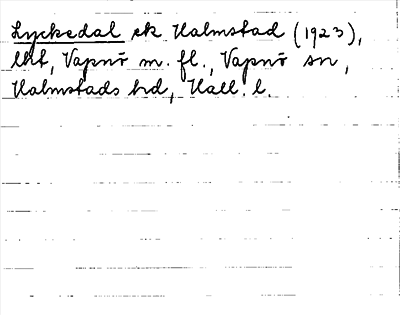 Lyckedal ek Halmstad (1923),
lht, Vapnö m. fl., Vapnö sn,
Halmstads hd, Hall. l.